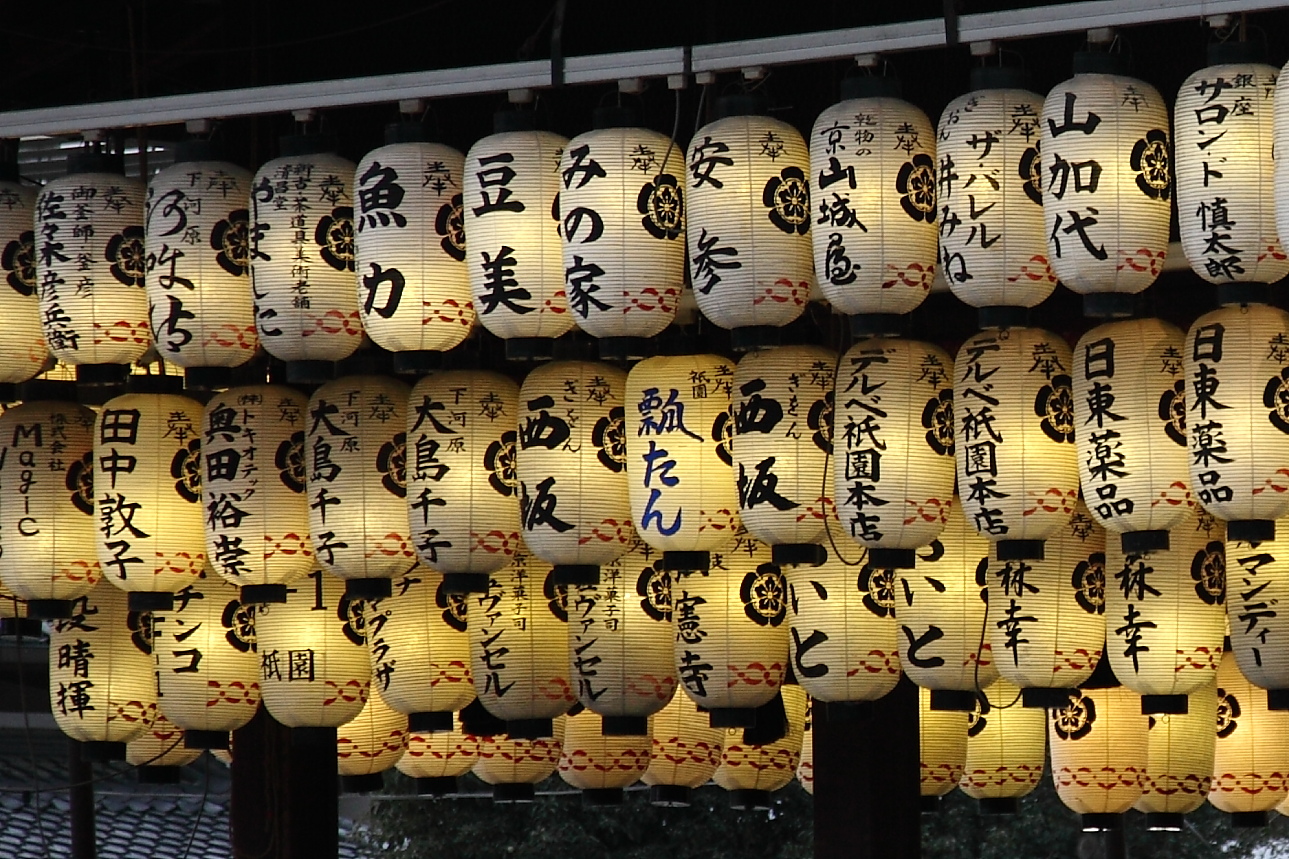 奉
御釜師・釜彦
佐々木彦兵衛
奉
下河原
阿吽坊
奉
新古茶道具美術老舗
清昌堂
やました
奉
魚力
奉
豆美
奉
みの家
奉
安参
奉
乾物の
京山城屋
奉
ぎおん
ザ・バレル
井みね
奉
山加代
奉
銀座
サロン・ド慎太郎
株式会社
Magic
奉
田中敦子
奉
(株)トキオテック
奥田裕崇
奉
下河原
大島千子
奉
下河原
大島千子
奉
ぎをん
西坂
奉
祇園
瓢たん
奉
ぎをん
西坂
奉
デルベ祇園本店
奉
デルベ祇園本店
奉
日東薬品
奉
日東薬品
晴揮
チンコ
1
祇園
プラザ
洋菓子司
ヴァンセル
洋菓子司
ヴァンセル
憲寺
いと
いと
奉
林幸
林幸
マンディー